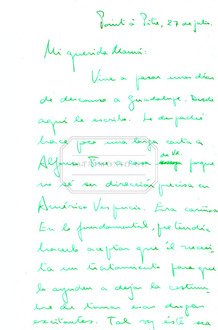 Point à Pitre, 27 de julio.
Mi querida Mamá:
Vine a pasar unos días
de descanso a Guadalupe. Desde
aquí le escribo. Le despaché
hace poco una larga carta a
Alfonso
no sé su dirección precisa en
Américo Vespucio. Era cariñosa
En lo fundamental, pretendía
hacerlo aceptar que él necesi-
ta un tratamiento para que
lo ayuden a dejar la costum-
bre de tomar esas drogas
excitantes. Tal vez esté en